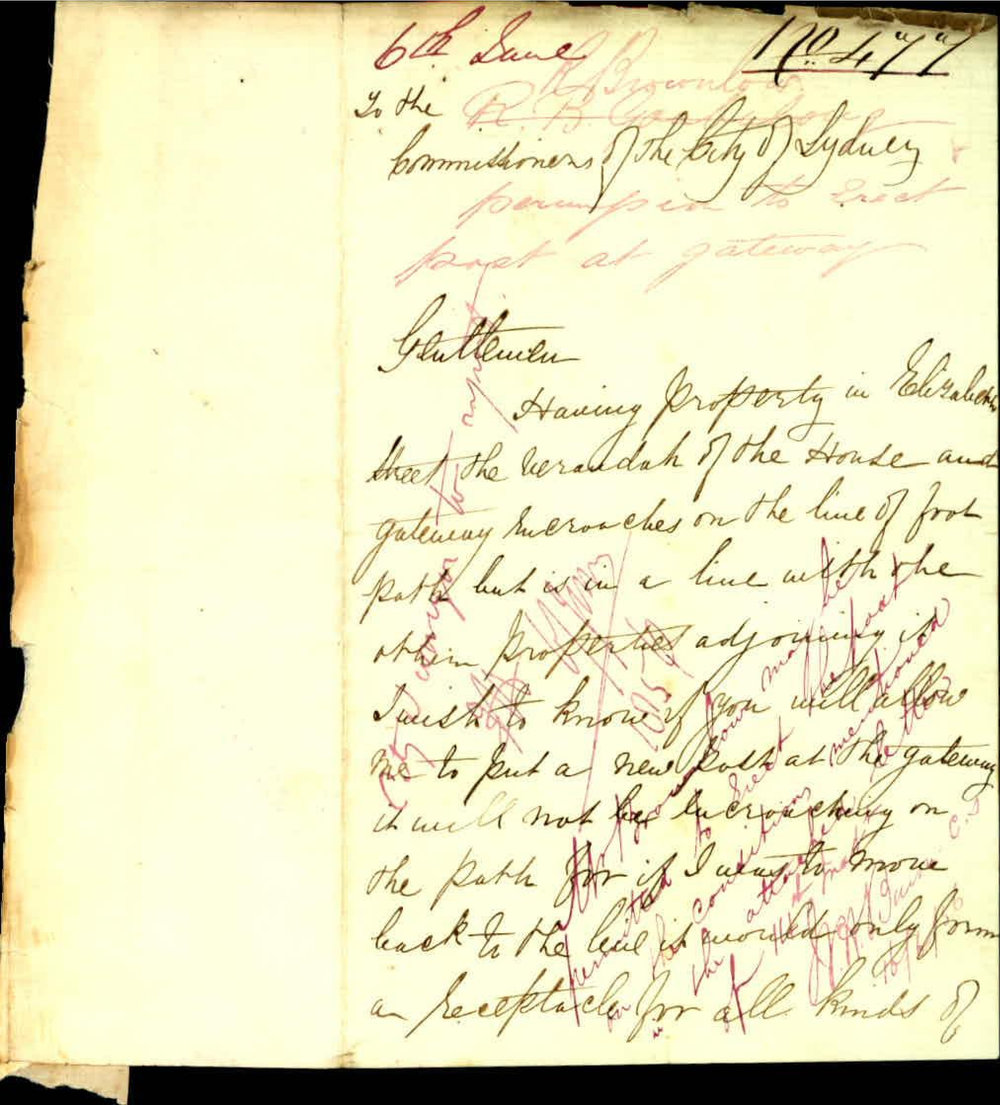 6th June
No. 477
R Brownlow
To the
R. B.
Commissioners of the City of Sydney
permission to Erect
post at gateway
Gentlemen
Having property in Elizabeth
street the verandah of the House and
gateway Encroaches on the line of foot
path but is in a line with the
other properties adjoining it
I wish to know if you will allow
me to put a new post at the gateway
it will not be Encroaching on
the path for if I was to move
back to the line it would only form
an Receptacle for all kinds of
City Surveyor to report
Mr Brownlow may be
permitted to Erect the post
on the conditions mentioned
in the attached letter
of